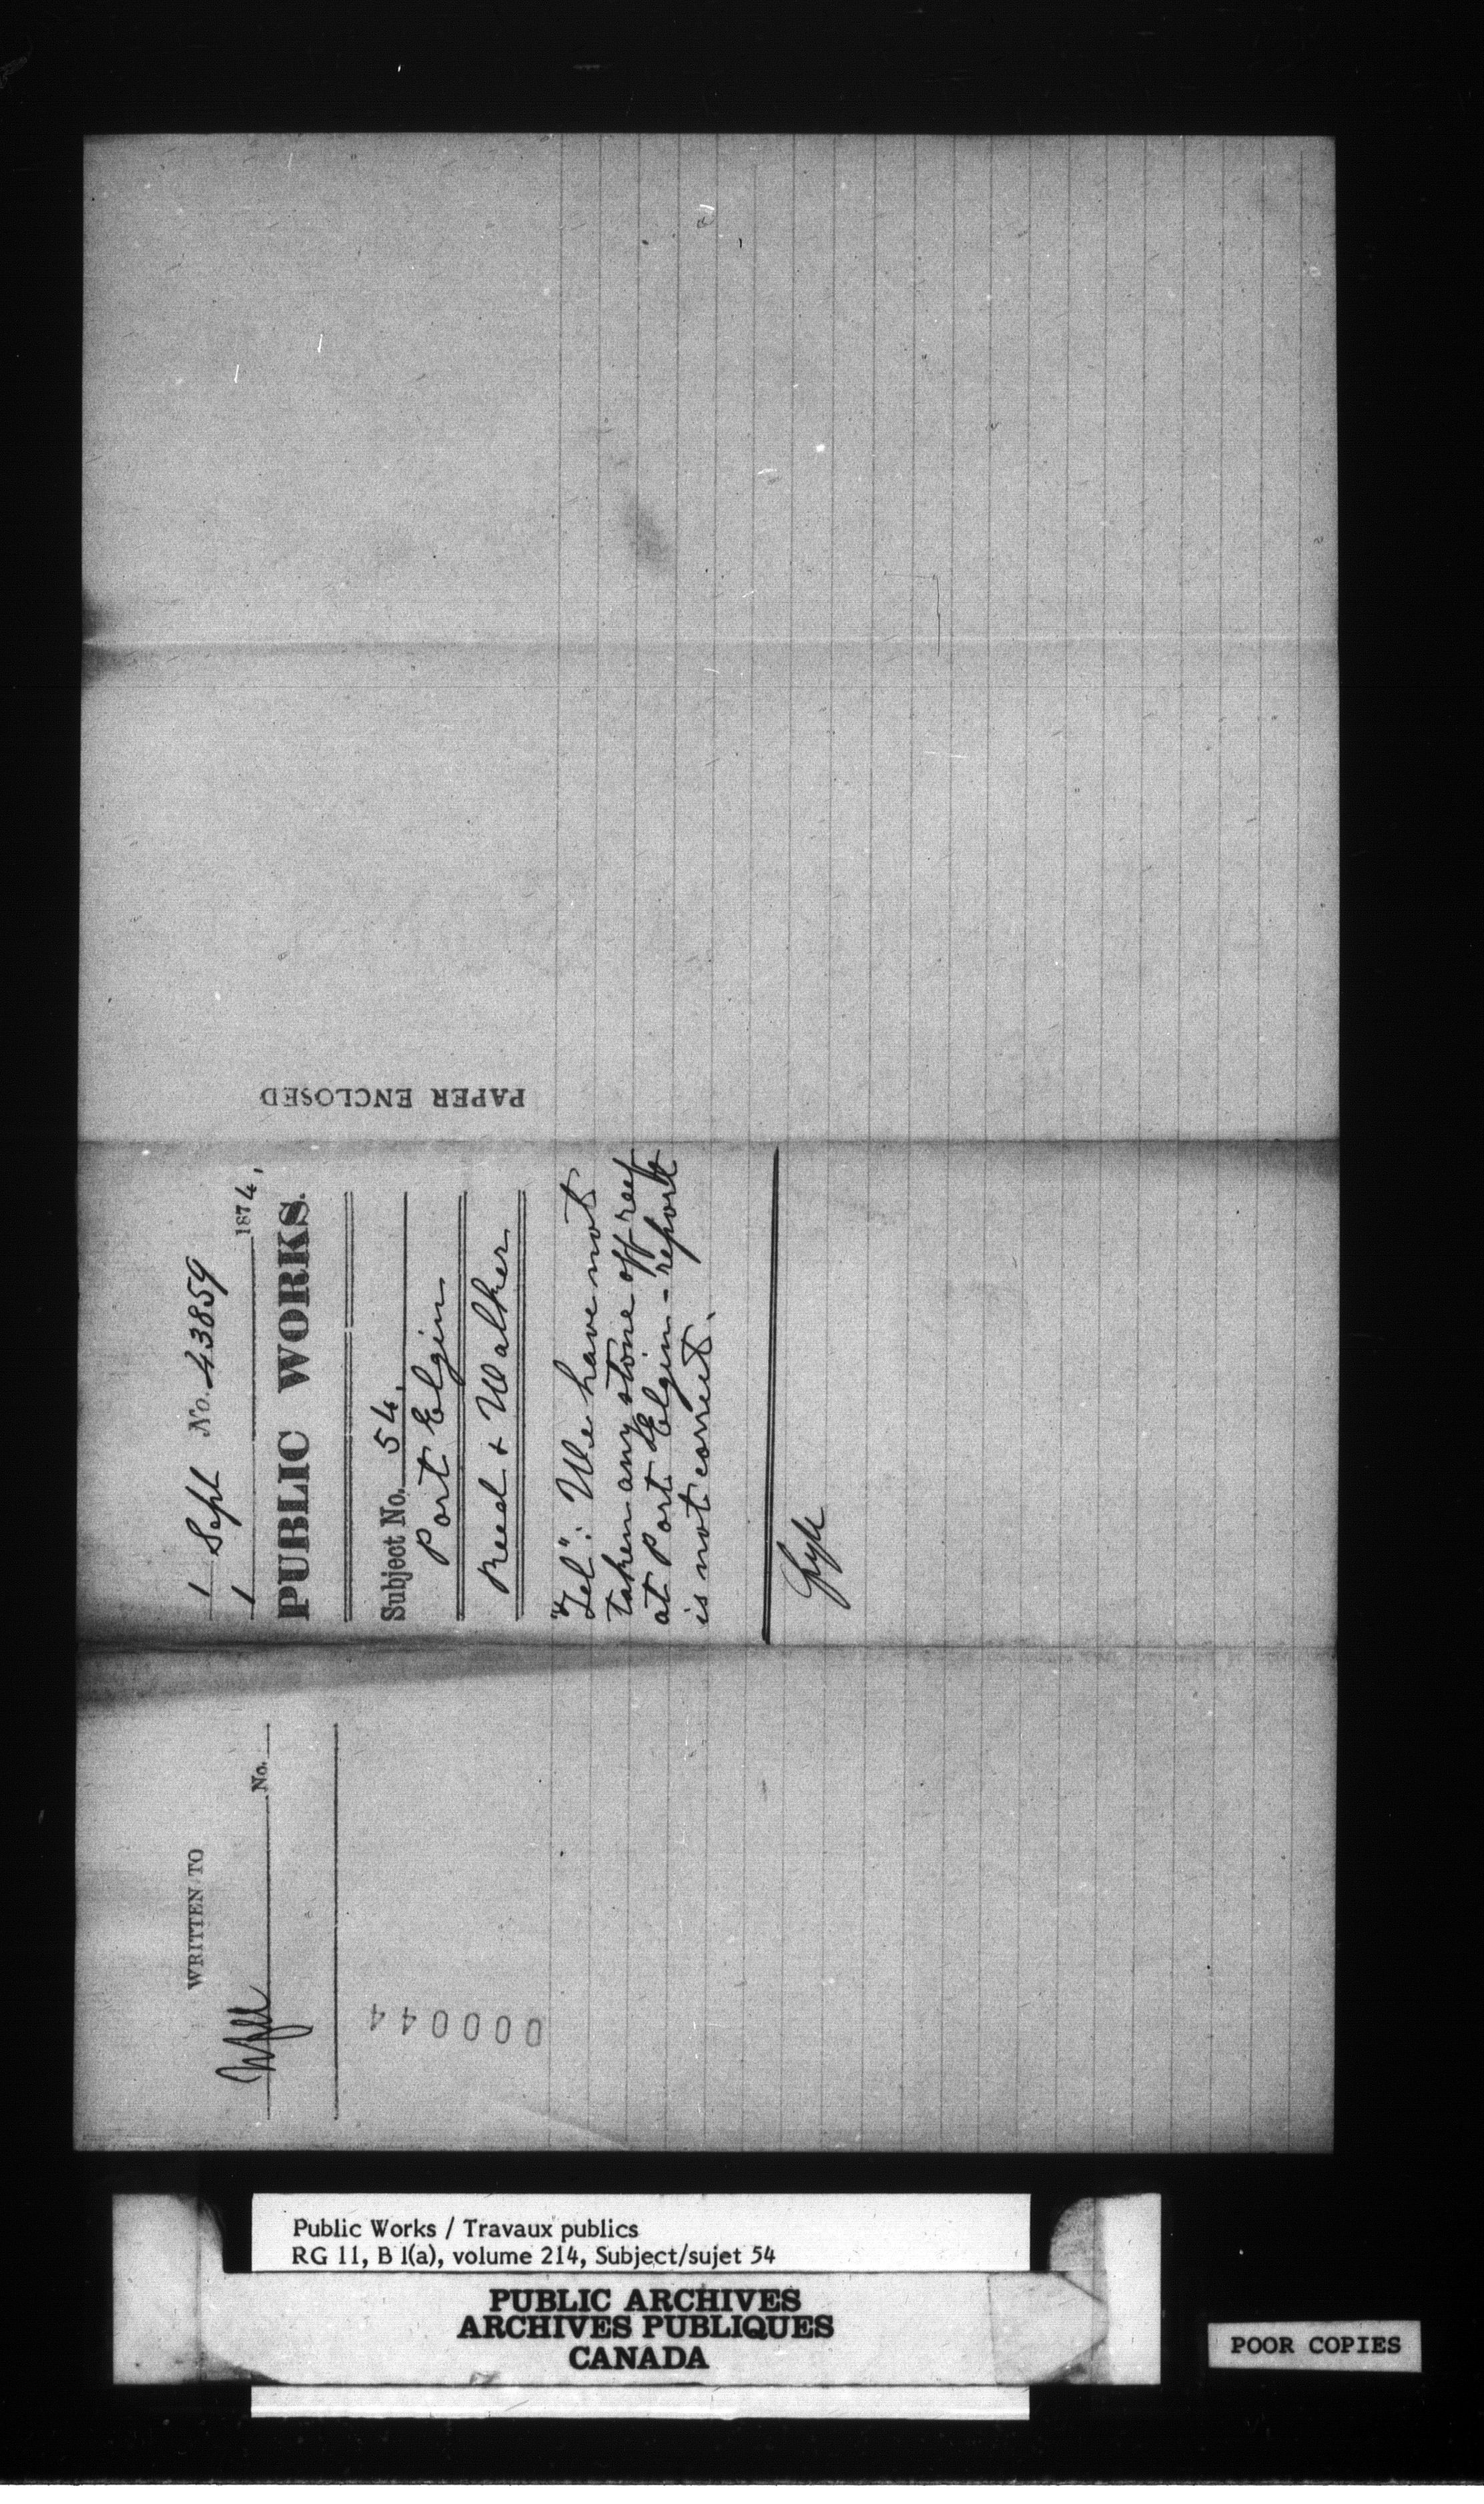 1 Sept No. 43859
1 1874.
PUBLIC WORKS.
Subject No. 54.
Port Elgin
Reed & Walker
"Tel": We have not
taken any stone off reef
at Port Elgin - report
is not correct.
PAPER ENCLOSED
WRITTEN TO
No.
000044
Public Works / Travaux publics
RG 11, B 1(a), volume 214, Subject/sujet 54
PUBLIC ARCHIVES
ARCHIVES PUBLIQUES
CANADA
POOR COPIES